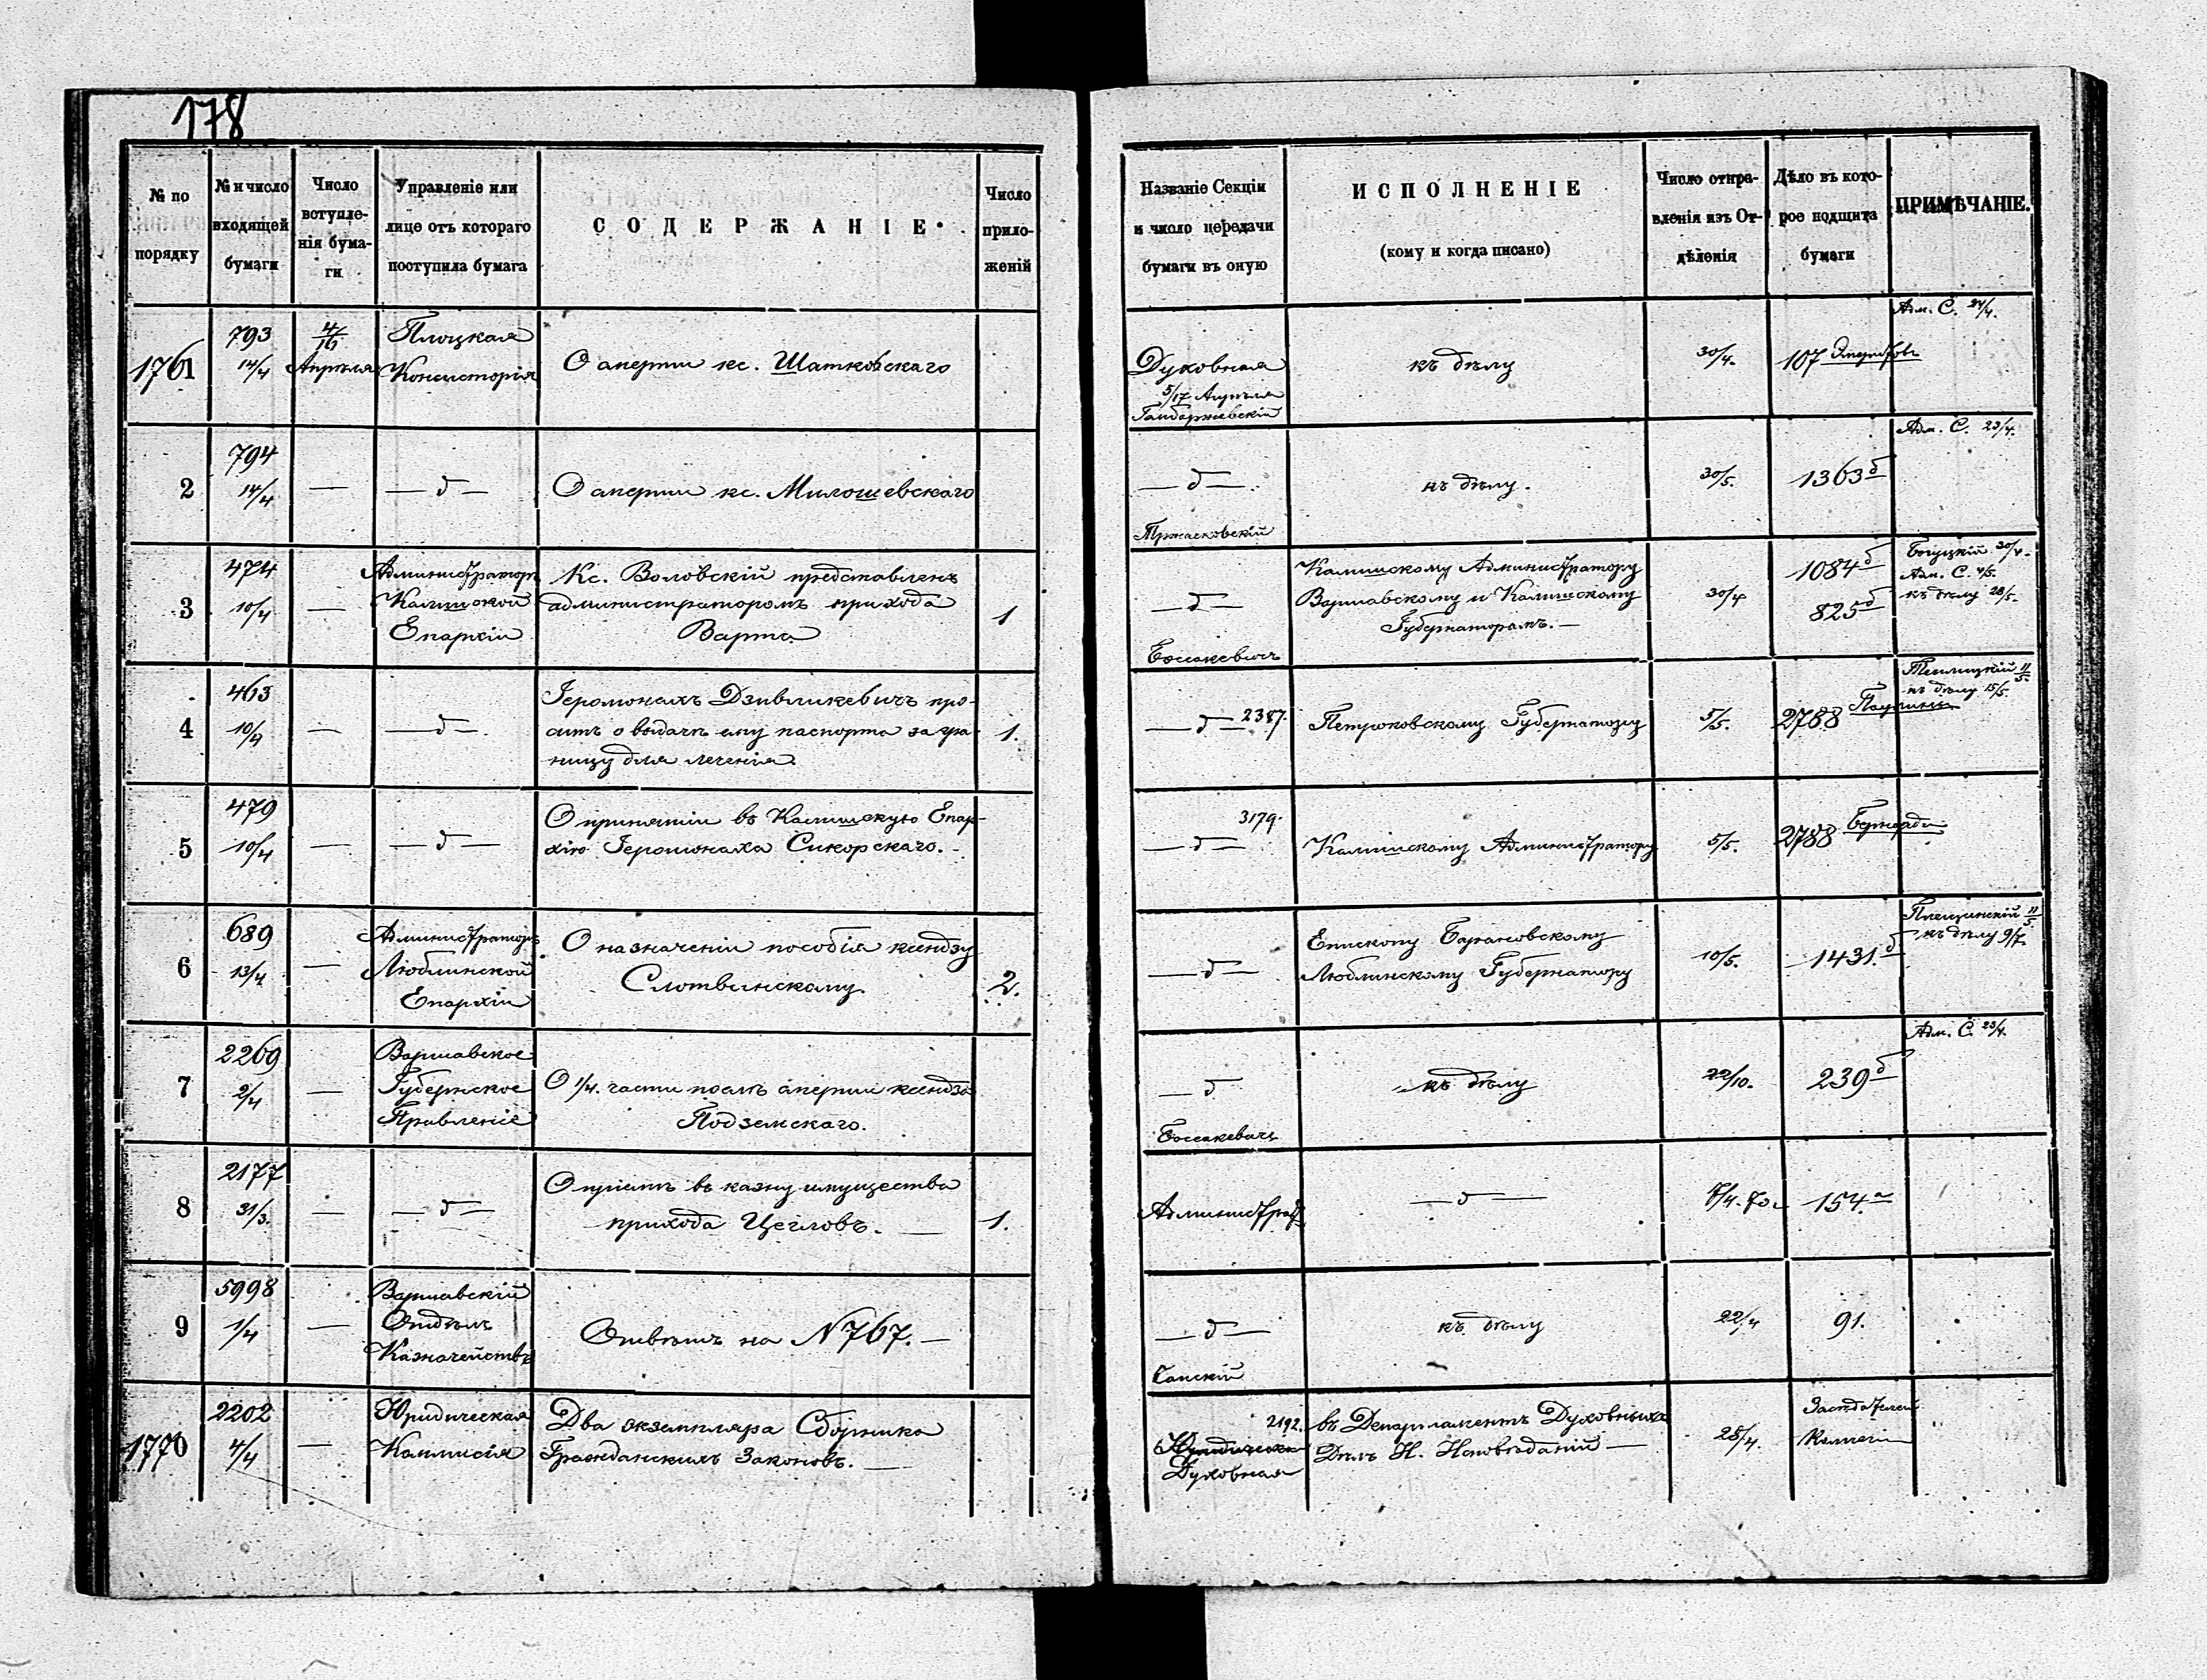 178
№ по порядку
№ и число входящей бумаги
Число вступленія бумаги
Управленіе или лице отъ котораго поступила бумага
СОДЕРЖАНІЕ.
Число приложеній
Названіе Секціи и число передачи бумаги въ оную
ИСПОЛНЕНІЕ
(кому и когда писано)
Число отправленія изъ Отдѣленія
Дѣло въ которое подшита бумаги
ПРИМѢЧАНІЕ.
1761
793
14/4
4/16
Апрѣля
Плоцкая
Консисторія
О аперти кс. Шатковскаго
Духовная
5/17 Апрѣля
къ дѣлу
30/4.
107
Адм. С. 24/4.
2
794
14/4
—
— д —
О аперти кс. Милошевскаго
— д —
къ дѣлу.
30/5.
1363 б
Адм. С. 23/4.
3
474
10/4
—
Администраторъ
Калишской
Епархіи
Кс. Воловскій представленъ
администраторомъ прихода
Варта
1
— д —
Калишскому Администратору
Варшавскому и Калишскому
Губернаторамъ. —
30/4
1084 б
825 б
30/4.
Адм. С. 4/5.
къ дѣлу 28/5.
4
463
10/4
—
— д —
Іеромонахъ Дзивликевичъ про-
ситъ о выдачѣ ему паспорта за гра-
ницу для леченія.
1.
— д — 2387.
Петроковскому Губернатору
5/5.
2788
11/5
къ дѣлу 15/5.
5
479
10/4
—
— д —
О принятіи въ Калишскую Епар-
хію Іеромонаха Сикорскаго. -
3179.
— д —
Калишскому Администратору
5/5.
2788
6
689
13/4
—
Администраторъ
Люблинской
Епархіи
О назначеніи пособія ксендзу
Слотвинскому.
2.
— д —
Епископу Барановскому
Люблинскому Губернатору
10/5.
1431. б
11/5
къ дѣлу 9/7.
7
2269
2/4
—
Варшавское
Губернское
Правленіе
О 1/4. части послѣ аперти ксендза
Подземскаго.
— д
къ дѣлу
22/10.
239 б
Адм. С. 23/4.
8
2177
31/3.
—
— д —
О пріемѣ въ казну имущества
прихода Цегловъ. —
1.
Администрат
— д —
154. а
9
5998
1/4
—
Варшавскій
Отдѣлъ
Казначействъ
Отвѣтъ на N 767. —
— д —
къ дѣлу
22/4
91.
1770
2202
4/4
—
Юридическая
Коммисія
Два экземпляра Сборника
Гражданскихъ Законовъ. —
2192.
Юридическая
Духовная
въ Департаментъ Духовныхъ
Дѣлъ И. Исповѣданій —
28/4.